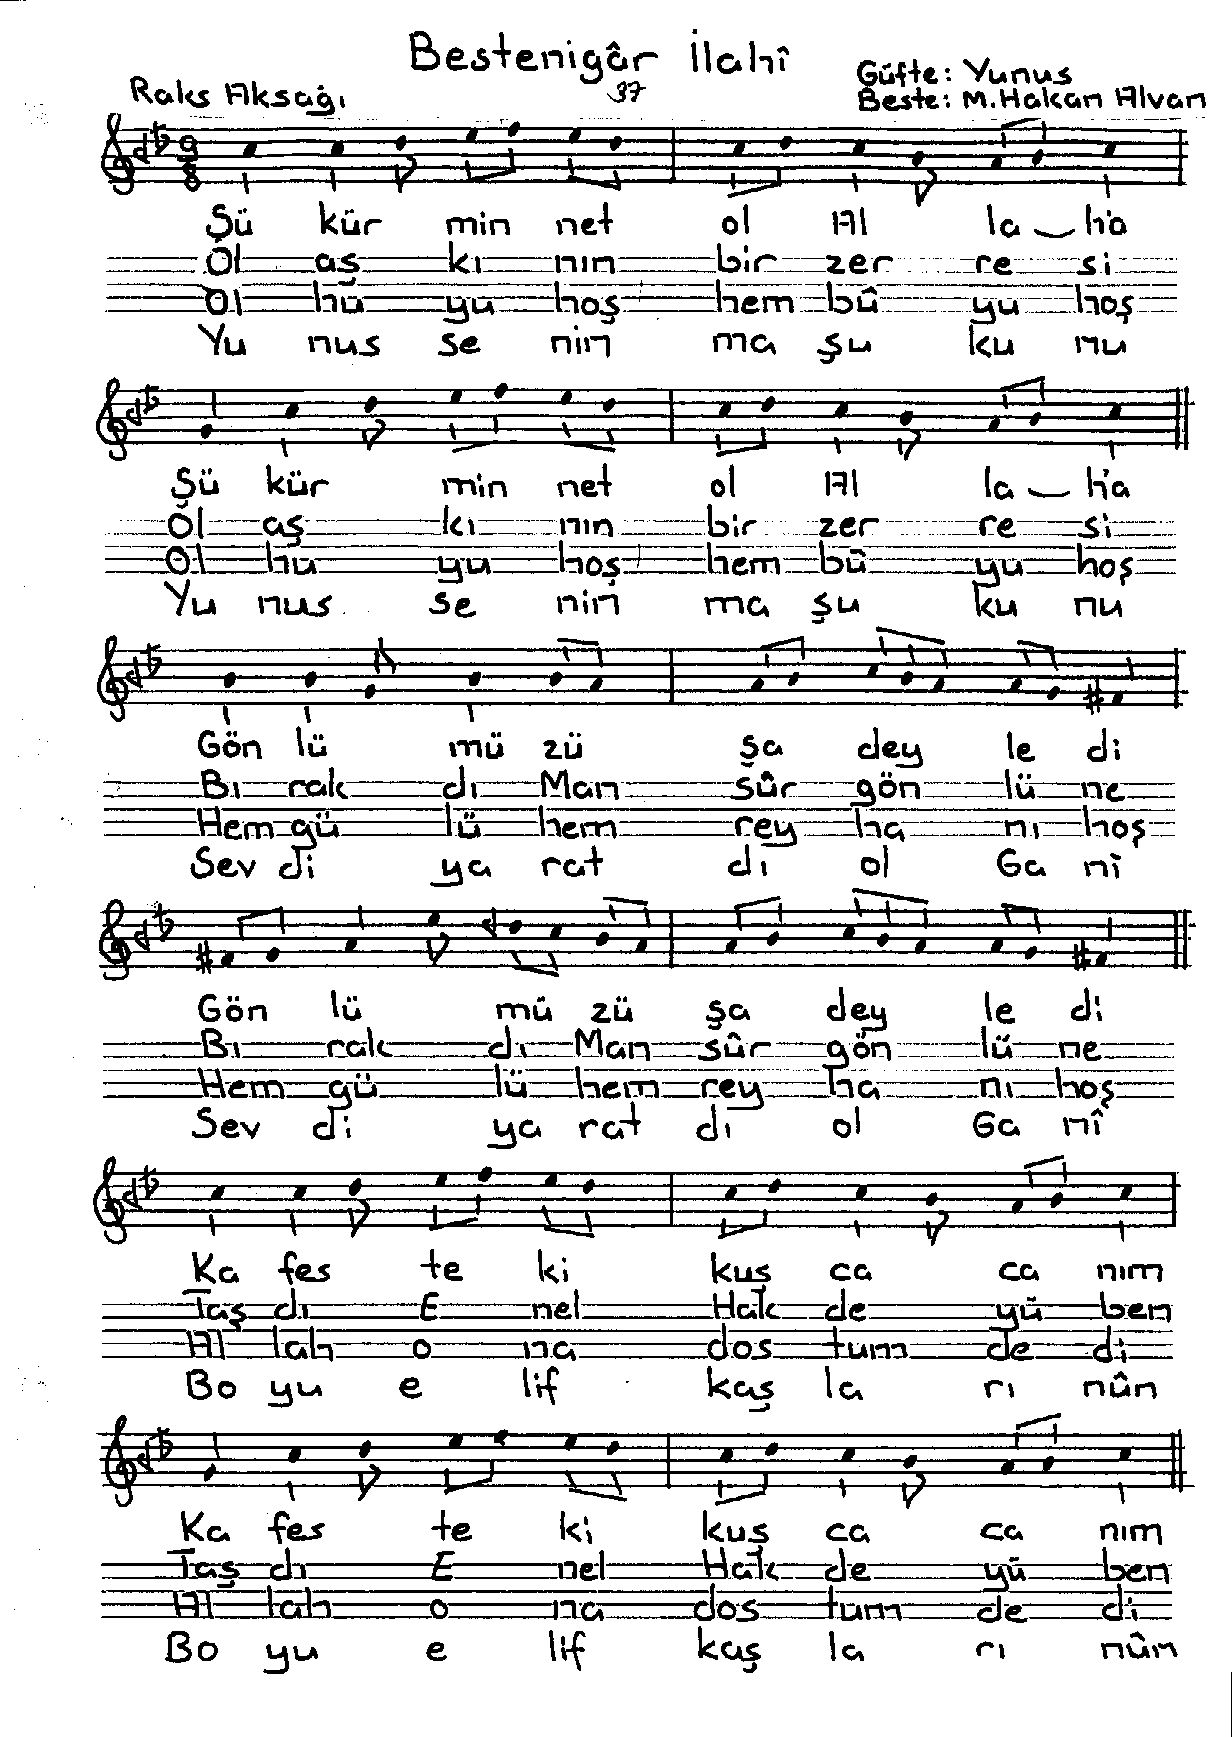 Bestenigâr İlahî
Raks Aksağı
37
Güfte: Yunus
Beste: M. Hakan Alvan
9
8
Şü kür min net ol Al la ‿ h'a
Ol aş kı nın bir zer re si
Ol hû yu hoş hem bû yu hoş
Yu nus se nin ma şu ku nu
Şü kür min net ol Al la ‿ h'a
Ol aş kı nın bir zer re si
Ol hu yu hoş hem bû yu hoş
Yu nus se nin ma şu ku nu
Gön lü mü zü şa dey le di
Bı rak dı Man sûr gön lü ne
Hem gü lü hem rey ha nı hoş
Sev di ya rat dı ol Ga nî
Gön lü mü zü şa dey le di
Bı rak dı Man sûr gön lü ne
Hem gü lü hem rey ha nı hoş
Sev di ya rat dı ol Ga nî
Ka fes te ki kuş ca ca nım
Taş dı E nel Hak de yü ben
Al lah o na dos tum de di
Bo yu e lif kaş la rı nûn
Ka fes te ki kuş ca ca nım
Taş dı E nel Hak de yü ben
Al lah o na dos tum de di
Bo yu e lif kaş la rı nûn